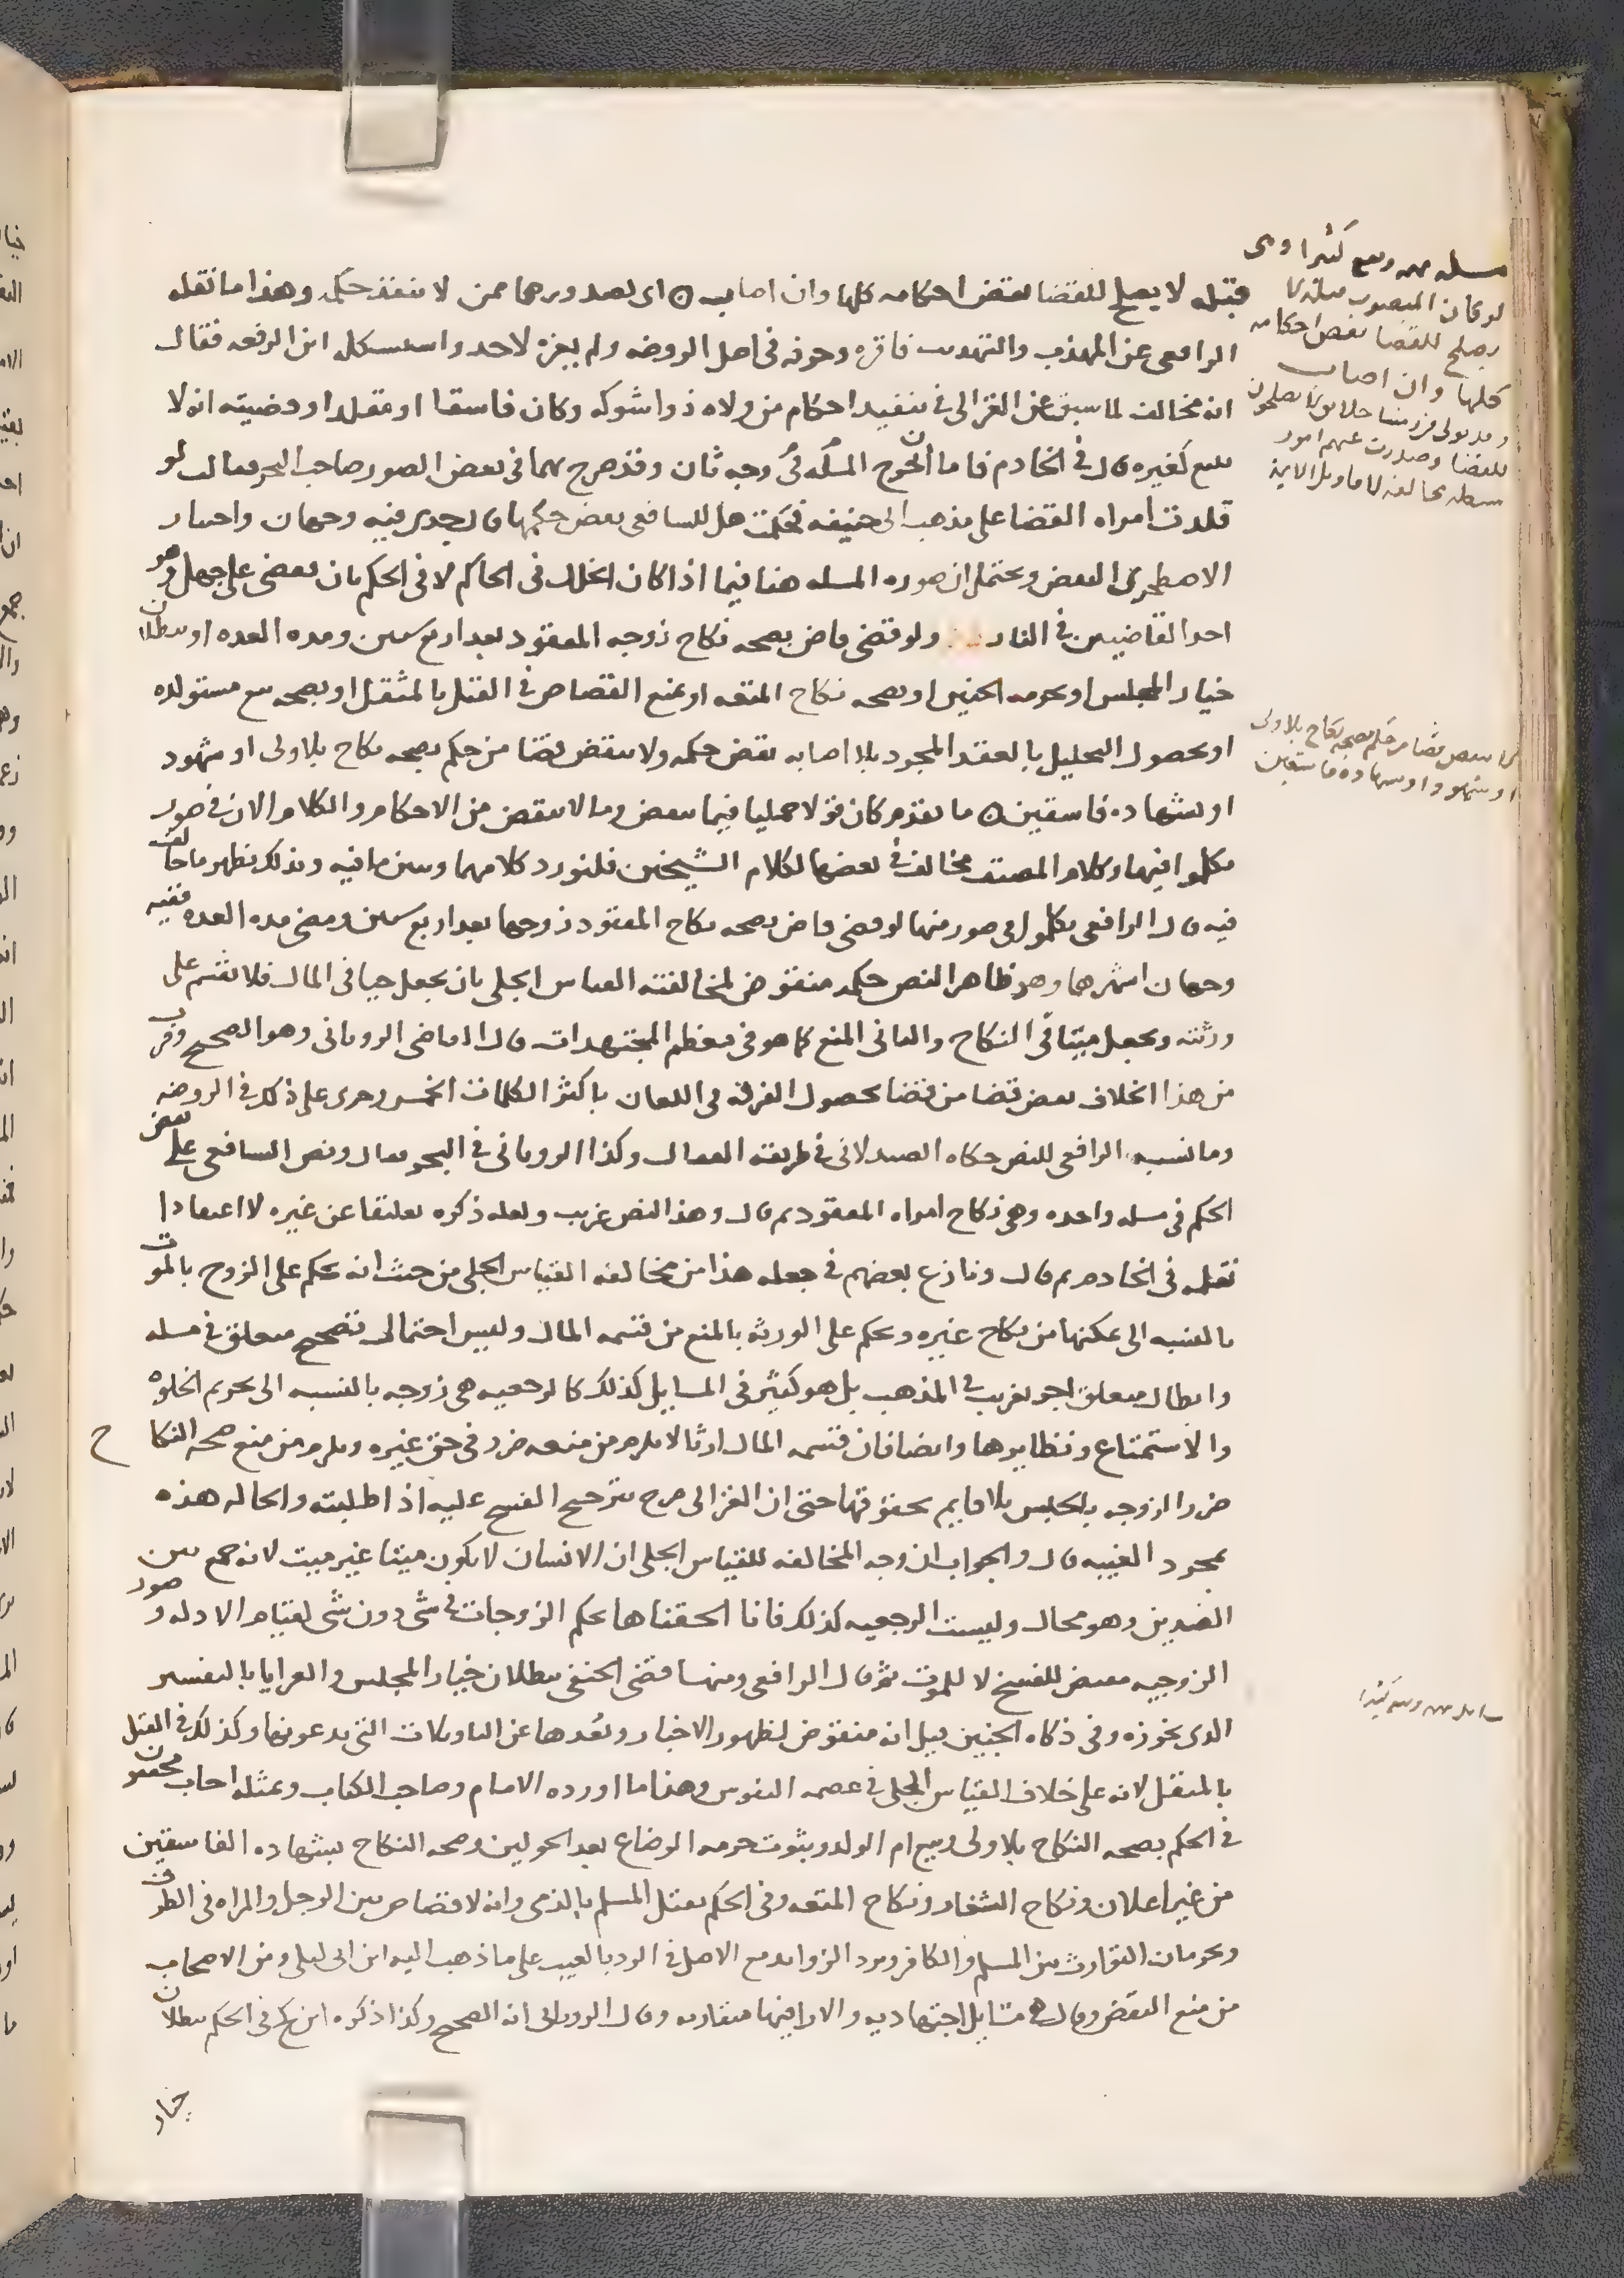 قبله لا يصلح للقضا نقض احكامه كلها وان اصاب ه اى لصدورها ممن لا ينفذ حكمه وهذا ما نقله
الرافعى عن المهذب والتهذيب فاقره وجزم فى اصل الروضه ولم يعزه لاحد واستشكله ابن الرفعه فقال
انه مخالف لما سبق عن الغزالى فى تنفيذ احكام من ولاه ذو اشوكه وكان فاسقا او مقلدا وقضيته انه لا
كغيره قال فى الخادم فاما المسله فى وجه ثان وقد صرح بهما فى بعض الصور صاحب البحر فقال لو
قلدت امراه القضا على مذهب ابى حنيفه فحكمت هل للشافعى نقض حكمها قال جدى فيه وجهان واختيار
الاصطخرى النقض ويحتمل ان صوره المسله هنا فيما اذا كان الخلل فى الحاكم لا فى الحكم بان يقضى على جهل وهو
احد القاضيين فى النار ولو قضى قاض بصحه نكاح زوجه المفقود بعد اربع سنين ومده العده او ببطلان
خيار المجلس او بحرمه الجنين او بصحه نكاح المتعه او بمنع القصاص فى القتل بالمثقل او بصحه بيع مستولده
او بحصول التحليل بالعقد المجرد بلا اصابه نقض حكمه ولا ينقض قضا من حكم بصحه نكاح بلا ولى او شهود
او بشهاده فاسقين ه ما تقدم كان قولا جمليا فيما ينقض وما لا ينقض من الاحكام والكلام الان فى صور
تكلموا فيها وكلام المصنف مخالف فى بعضها لكلام الشيخين فلنورد كلامهما ونبين ما فيه وبذلك يظهر ما خالف
فيه قال الرافعى تكلموا فى صور منها لو قضى قاض بصحه نكاح المفقود زوجها بعد اربع سنين ومضى مده العده ففيه
وجهان اشهرهما وهو ظاهر النص حكمه منقوض لمخالفته القياس الجلى بان يجعل حيا فى المال فلا يقسم على
ورثته ويجعل ميتا فى النكاح والثانى المنع كما هو فى معظم المجتهدات قال القاضى الرويانى وهو الصحيح وقرب
من هذا الخلاف نقض قضا من قضا بحصول الفرقه فى اللعان باكثر الكلمات الخمس وجرى على ذلك فى الروضه
وما نسبه الرافعى للنص حكاه الصيدلانى فى طريقه القفال وكذا الرويانى فى البحر فقال ونص الشافعى على نقض
الحكم فى مسله واحده وهى نكاح امراه المفقود ثم قال وهذا النص غريب ولعله ذكره تعليقا عن غيره لا اعتقادا
نقله فى الخادم ثم قال ونازع بعضهم فى جعله هذا من مخالفه القياس الجلى من حيث انه يحكم على الزوج بالموت
بالنسبه الى تمكنها من نكاح غيره ويحكم على الورثه بالمنع من قسمه المال وليس احتمال تصحيح متعلق فى مسله
وابطال متعلق اخر بغريب فى المذهب بل هو كثير فى المسايل كذلك كالرجعيه هى زوجه بالنسبه الى تحريم الخلوه
والاستمتاع ونظايرها وايضا فان قسمه المال ارثا لا يلزم من منعه ضرر فى حق غيره ويلزم من منع صحه النكاح
ضرر الزوجه بالحبس بلا قايم بحقوقها حتى ان الغزالى صرح بترجيح الفسخ عليه اذا طلبته والحاله هذه
بمجرد الغيبه قال والجواب ان وجه المخالفه للقياس الجلى ان الانسان لا يكون ميتا غير ميت لانه جمع بين
الضدين وهو محال وليست الرجعيه كذلك فانا الحقناها بحكم الزوجات فى شى دون شى لقيام الادله وصور
الزوجيه مقتض للفسخ لا للموت ثم قال الرافعى ومنها قضى الحنفى ببطلان خيار المجلس والعرايا بالتفسير
الذى نجوزه وفى ذكاه الجنين قيل انه منقوض لظهور الاخبار وبُعدها عن التاويلات التى يدعونها وكذلك فى القتل
بالمثقل لانه على خلاف القياس الجلى فى عصمه النفوس وهذا ما اورده الامام وصاحب الكتاب وبمثله اجاب محققون
فى الحكم بصحه النكاح بلا ولى وبيع ام الولد وبثبوت حرمه الرضاع بعد الحولين وصحه النكاح بشهاده الفاسقين
من غير اعلان ونكاح الشغار ونكاح المتعه وفى الحكم بقتل المسلم بالذمى وانه لا قصاص بين الرجل والمراه فى الطرف
وبحرمان التوارث بين المسلم والكافر وبرد الزوايد مع الاصل فى الرد بالعيب على ما ذهب اليه ابن ابى ليلى ومن الاصحاب
من منع النقض وقال هى مسايل اجتهاديه والادله فيها متقاربه وقال الرويانى انه الصحيح وكذا ذكره ابن كج فى الحكم ببطلان
خيار
يصلح للقضا نقض احكامه
كلها وان اصاب
للقضا وصدرت عنهم امور
ينقض قضا من حكم بصحه نكاح بلا ولى
او شهود او بشهاده فاسقين